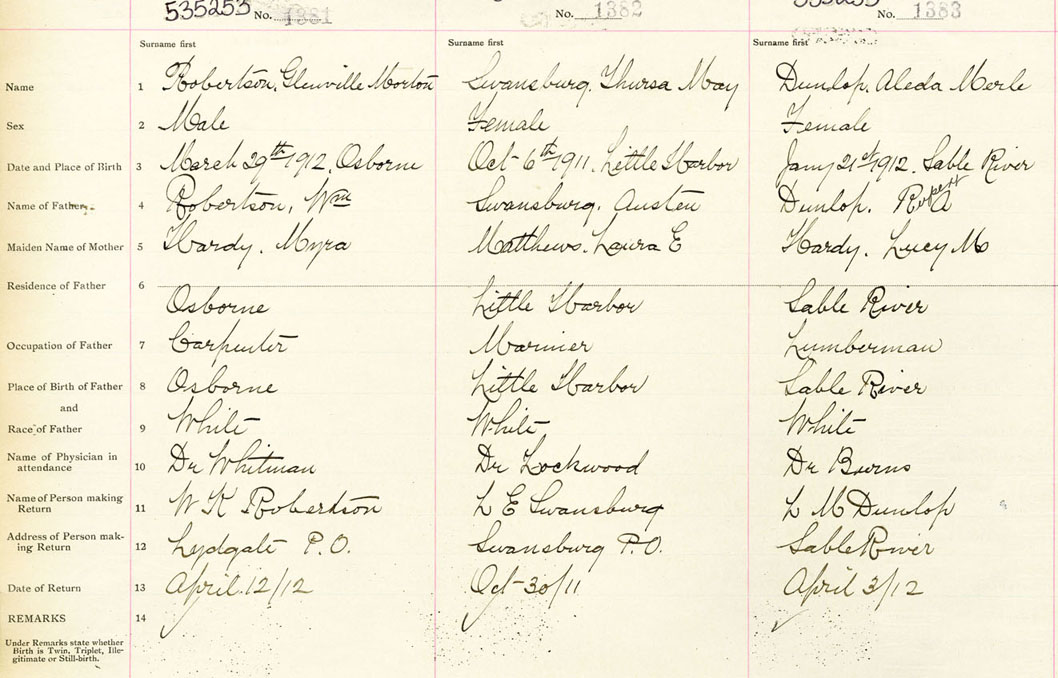 535253 No. 1381 No. 1382 535253 No. 1383
Surname first Surname first Surname first
Name 1 Robertson, Glenville Morton Swansburg, Thursa May Dunlop, Aleda Merle
Sex 2 Male Female Female
Date and Place of Birth 3 March 29th 1912, Osborne Oct 6th 1911, Little Harbor Jany 21st 1912, Sable River
Name of Father 4 Robertson, Wm Swansburg, Austen Dunlop, Rupert A
Maiden Name of Mother 5 Hardy, Myra Matthews, Laura E Hardy, Lucy M
Residence of Father 6
Osborne Little Harbor Sable River
Occupation of Father 7 Carpenter Mariner Lumberman
Place of Birth of Father 8 Osborne Little Harbor Sable River
and
Race of Father 9 White White White
Name of Physician in
attendance 10 Dr Whitman Dr Lockwood Dr Burns
Name of Person making
Return 11 W K Robertson L E Swansburg L M Dunlop
Address of Person mak-
ing Return 12 Lydgate P.O. Swansburg P.O. Sable River
Date of Return 13 April 12/12 Oct 30/11 April 3/12
REMARKS 14
Under Remarks state whether
Birth is Twin, Triplet, Ille-
gitimate or Still-birth.